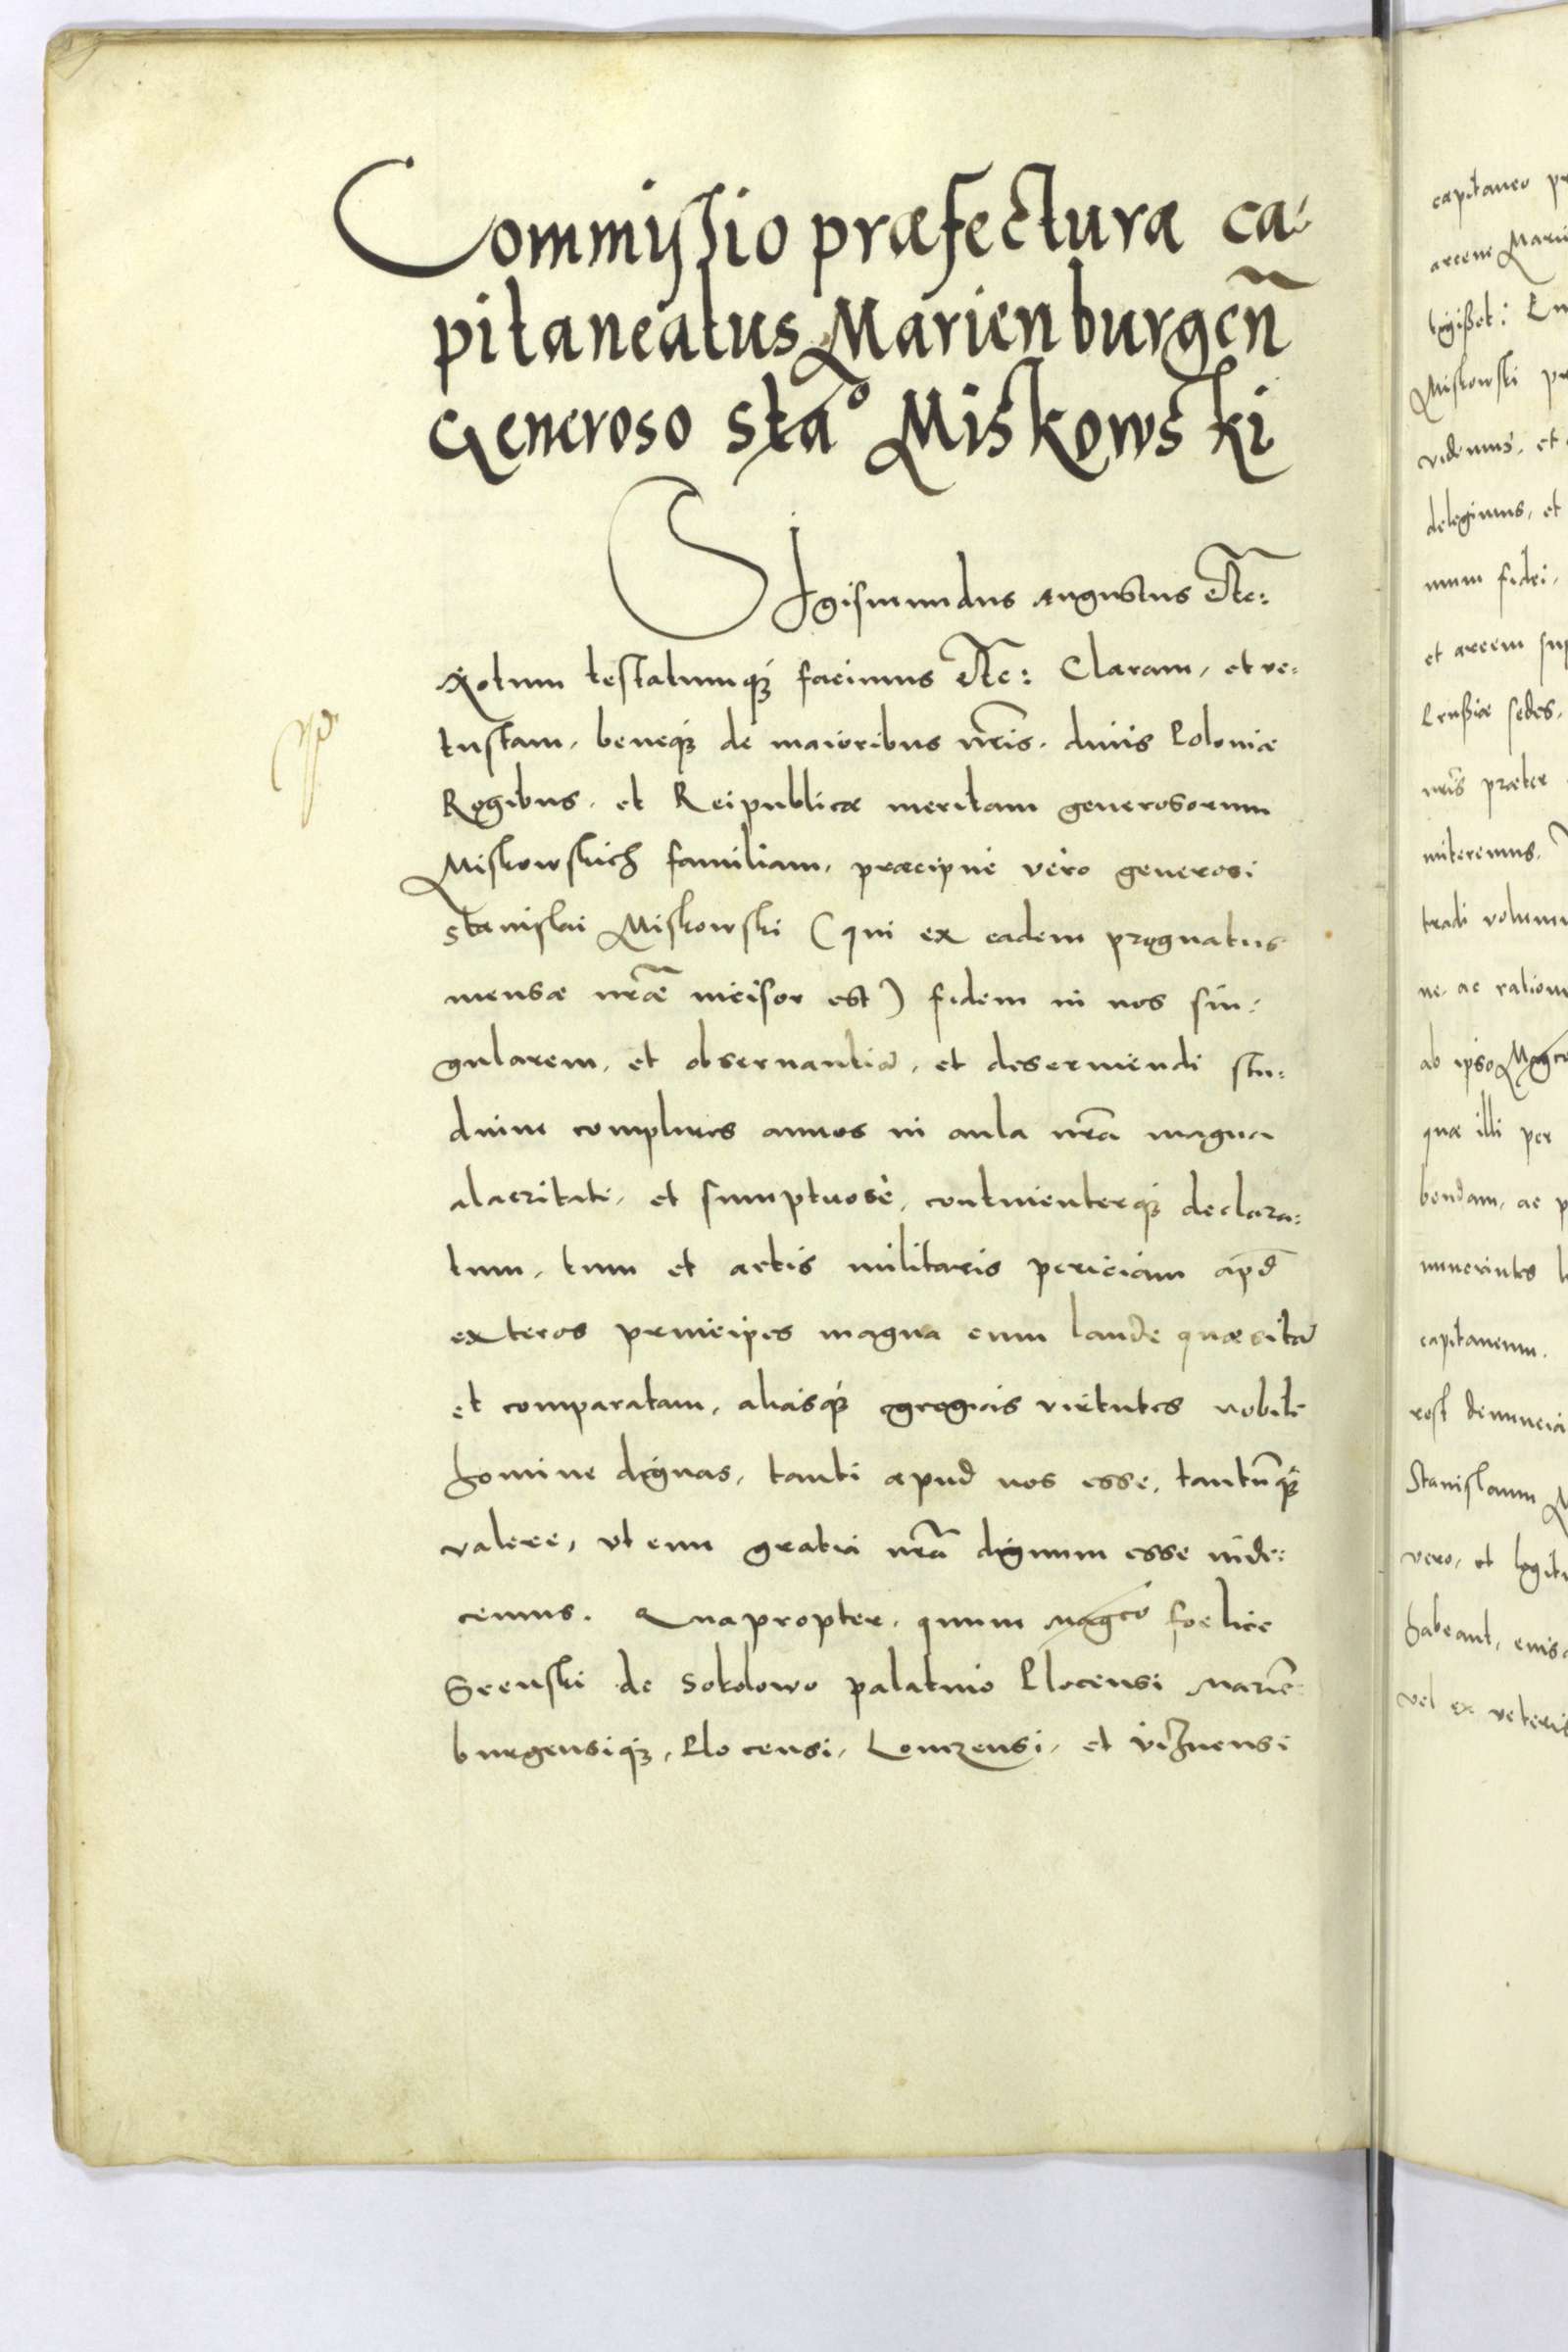 Commissio præfectura ca-
pitaneatus Marienburgeñ
Generoso Sta° Miskowski
Sigismundus Augustus Etc:
Notum testatumq3 facimus Etc: Claram, et ve-
tustam, beneq3 de maioribus nr̃is, divis Poloniæ
Regibus, et Reipublicæ meritam generosorum
Miskowskich familiam, præcipuè vero generosi
Stanislai Miskowski (qui ex eadem prognatus
mensæ nr̃æ incisor est) fidem in nos sin-
gularem, et observantiã, et deserviendi stu-
dium complures annos in aula nr̃a magna
alacritate, et sumptuosè, continenterq3 declara-
tum, tum et artis militaris periciam apd̃
exteros principes magna cum laude quæsitã
et comparatam, aliasq3 egregias virtutes nobile
homine dignas, tanti apud nos esse, tantũq3
valere, ut eum gratia nr̃a dignum esse iudi-
cemus. Quapropter, quum Magco foelice
Srenski de Sokolowo palatino Plocensi Mariẽ-
burgensiq3, Plocensi, Lomzensi, et Viznensi
capitaneo
arcem
Miskowski
videmus, et
delegimus, et
mum fidei,
et arcem
Prussiæ sedes,
nr̃is præter
miteremus.
tradi volumu
ne, ac ration
ab ipso Magco
quæ illi per
bendam, ac p
capitaneum.
Stanislaum M
vero, et legiti
habeant, eius
vel ex veteris